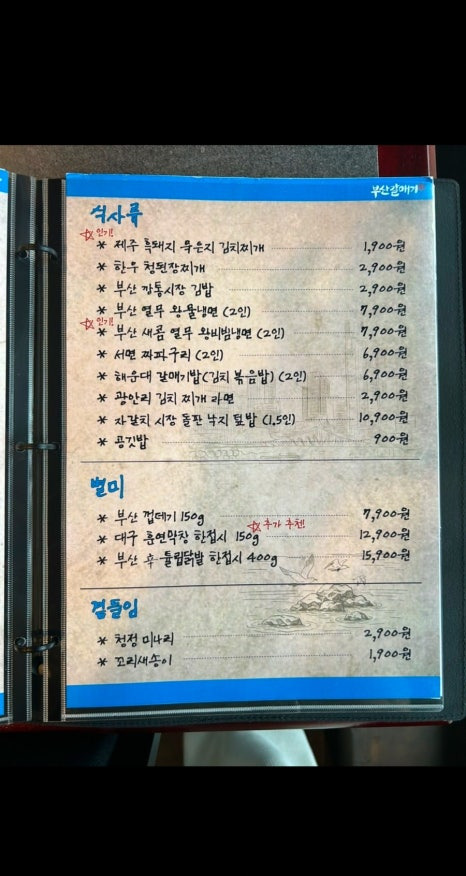 부산갈매기
식사류
인기!
* 제주 흑돼지 묵은지 김치찌개 1,900원
* 한우 청된장찌개 2,900원
* 부산 깡통시장 김밥 2,900원
* 부산 열무 왕물냉면 (2인) 7,900원
인기!
* 부산 새콤 열무 왕비빔냉면 (2인) 7,900원
* 서면 짜파구리 (2인) 6,900원
* 해운대 갈매기밥(김치 볶음밥) (2인) 6,900원
* 광안리 김치 찌개 라면 2,900원
* 자갈치 시장 돌판 낙지 덮밥 (1.5인) 10,900원
* 공깃밥 900원
별미
* 부산 껍데기 150g 7,900원
추가 추천!
* 대구 훈연막창 한접시 150g 12,900원
* 부산 후-들립닭발 한접시 400g 15,900원
곁들임
* 청정 미나리 2,900원
* 꼬리새송이 1,900원